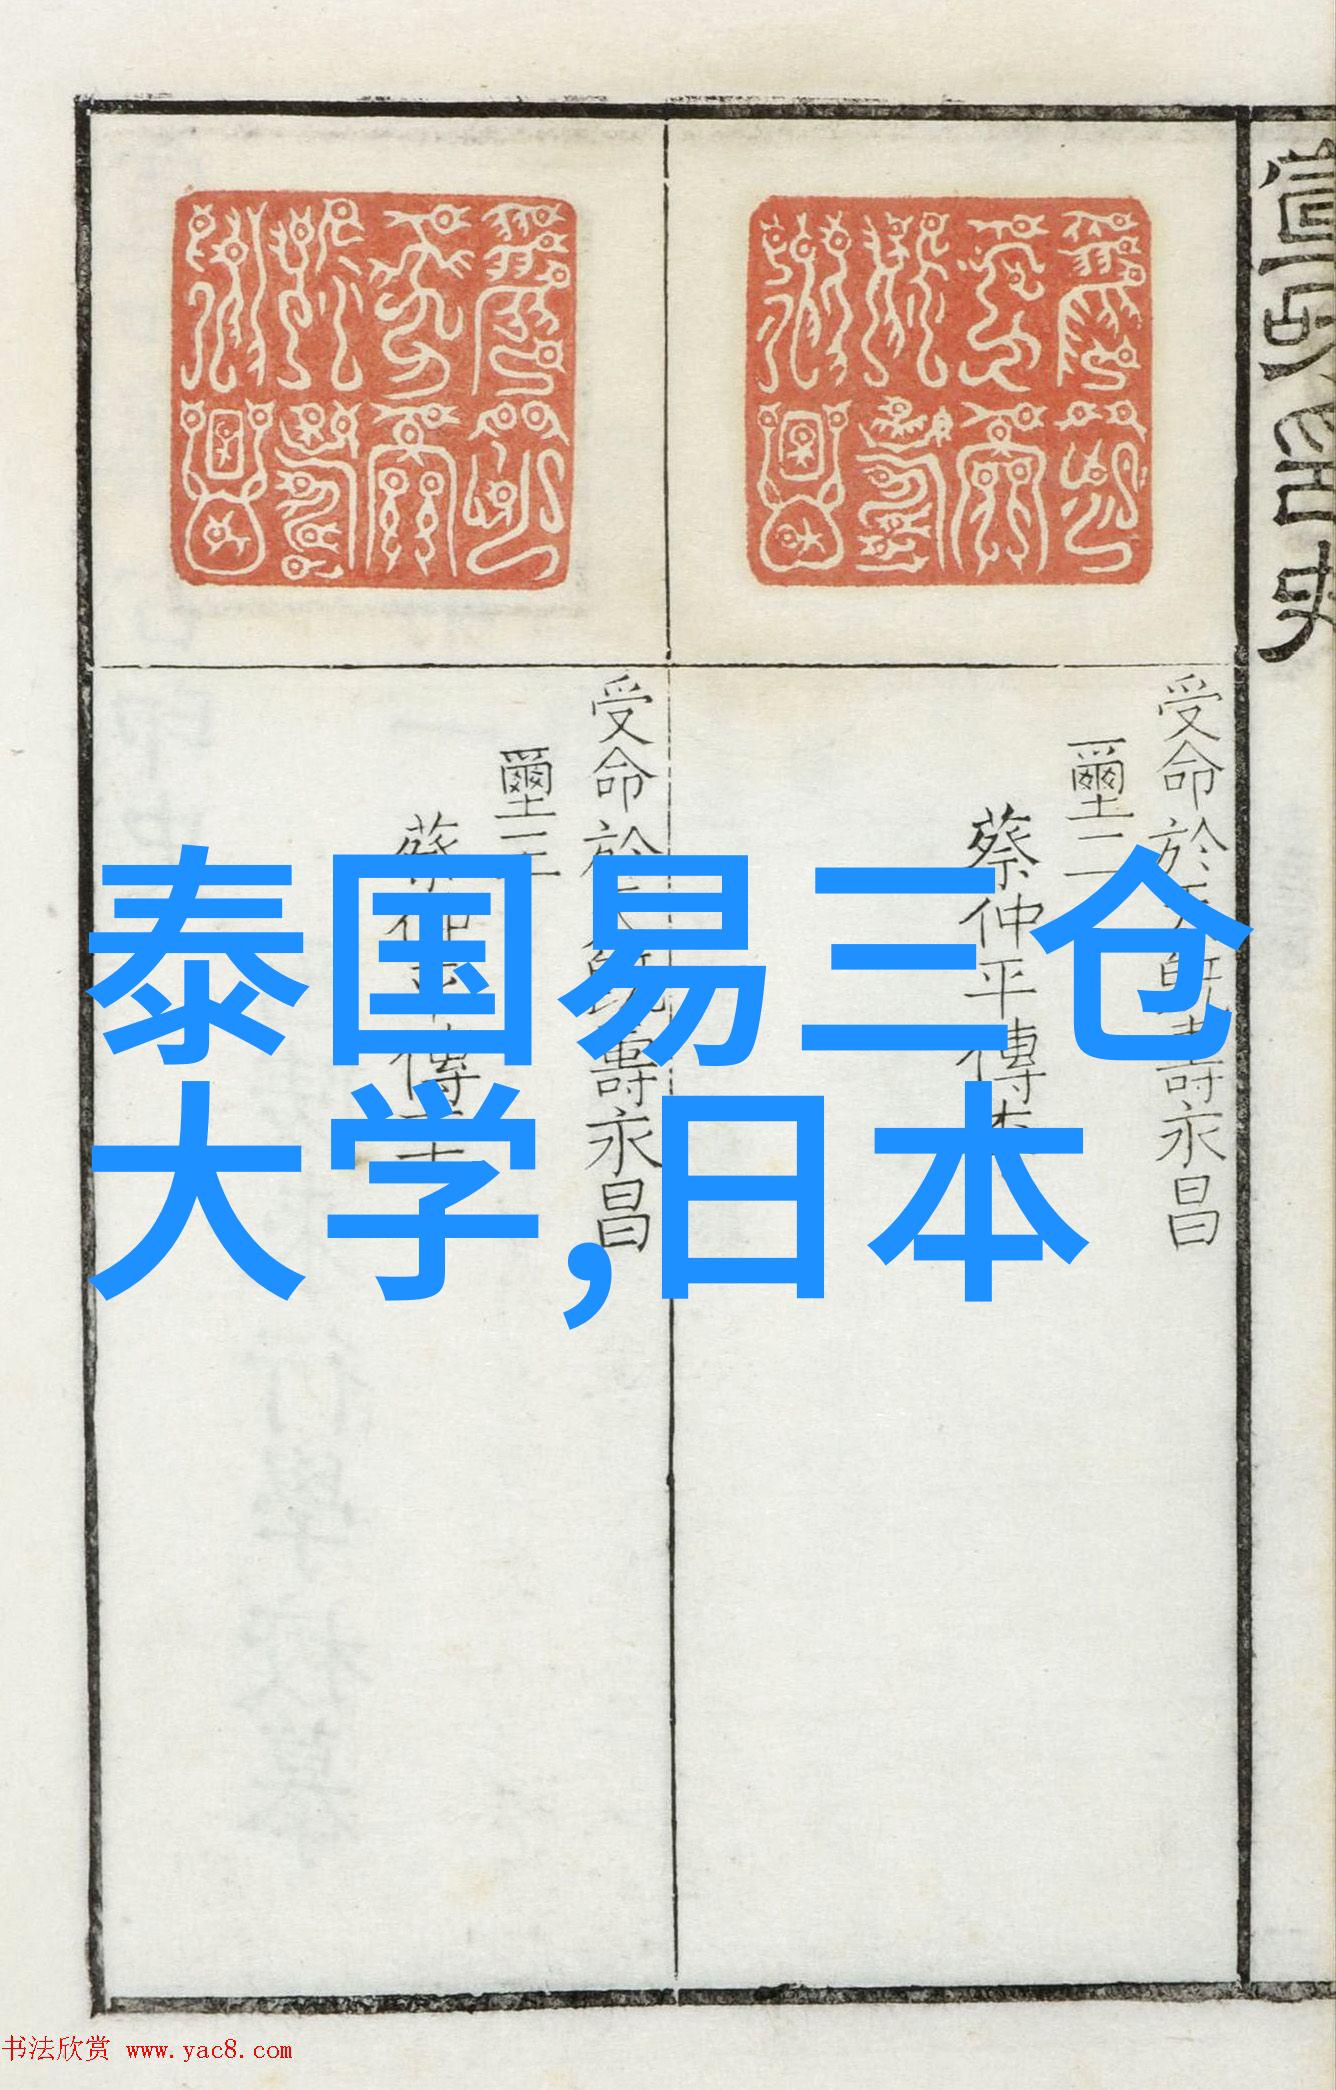 泰国易三仓
大学,日本
受命於天既壽永昌
壐二
蔡仲平傳
受命於天既壽永昌
壐三
蔡仲平傳
书法欣赏 www.yac8.com